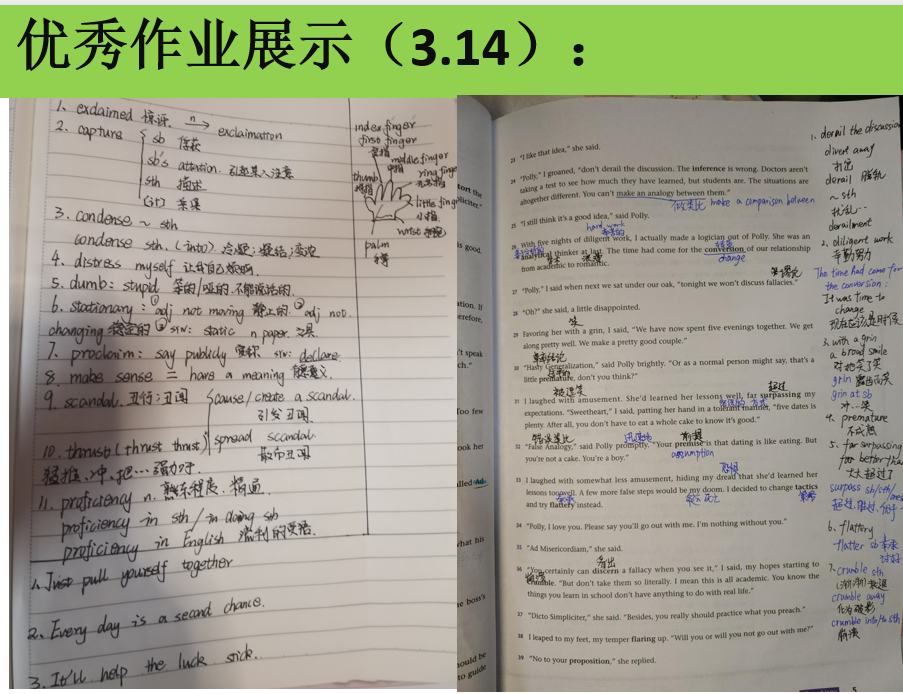 优秀作业展示（3.14）：
1. exclaimed 惊讶. n→ exclaimation
2. capture { sb 俘获
sb's attention. 引起某人注意
sth 描述
3. condense ~ sth
condense sth. (into) 冷凝；凝结；变浓
4. distress myself 让我自己烦恼.
5. dumb: stupid 笨的/哑的.不能说话的.
6. stationary: ① adj not moving 静止的 ② adj not
changing 稳定的 ③ SIN: static n paper. 文具
7. proclaim: say publicly 宣称 SIN: declare
8. make sense = have a meaning 有意义.
9. scandal. 丑行；丑闻 { cause/create a scandal.
引发丑闻
spread scandal.
散布丑闻
10. thrust (thrust thrust)
猛推、冲、把…强加于.
11. proficiency n. 熟练程度、精通
proficiency in sth / in doing sth
proficiency in English 流利的英语.
1. Just pull yourself together
2. Every day is a second chance.
3. It'll help the luck stick.
index finger
first finger
食指
middle finger
中指
ring finger
thumb
拇指
little finger
小指
wrist 手腕
palm
手掌
tort the
is good.
ation. If
't speak
ch."
Too few
ook her
lled Ad
what his
e boss's
ould be
to guide
23 "I like that idea," she said.
24 "Polly," I groaned, "don't derail the discussion. The inference is wrong. Doctors aren't
taking a test to see how much they have learned, but students are. The situations are
altogether different. You can't make an analogy between them."
做类比 make a comparison between
25 "I still think it's a good idea," said Polly.
hard work
辛苦的
26 With five nights of diligent work, I actually made a logician out of Polly. She was an
analytical thinker at last. The time had come for the conversion of our relationship
change
from academic to romantic.
27 "Polly," I said when next we sat under our oak, "tonight we won't discuss fallacies."
28 "Oh?" she said, a little disappointed.
笑
29 Favoring her with a grin, I said, "We have now spent five evenings together. We get
along pretty well. We make a pretty good couple."
30 "Hasty Generalization," said Polly brightly. "Or as a normal person might say, that's a
little premature, don't you think?"
被逗笑
超过
31 I laughed with amusement. She'd learned her lessons well, far surpassing my
expectations. "Sweetheart," I said, patting her hand in a tolerant manner, "five dates is
plenty. After all, you don't have to eat a whole cake to know it's good."
错误类比
前提
32 "False Analogy," said Polly promptly. "Your premise is that dating is like eating. But
you're not a cake. You're a boy."
assumption
恐惧
33 I laughed with somewhat less amusement, hiding my dread that she'd learned her
lessons too well. A few more false steps would be my doom. I decided to change tactics
and try flattery instead.
策略
34 "Polly, I love you. Please say you'll go out with me. I'm nothing without you."
35 "Ad Misericordiam," she said.
看出
36 "You certainly can discern a fallacy when you see it," I said, my hopes starting to
crumble. "But don't take them so literally. I mean this is all academic. You know the
things you learn in school don't have anything to do with real life."
崩溃
37 "Dicto Simpliciter," she said. "Besides, you really should practice what you preach."
38 I leaped to my feet, my temper flaring up. "Will you or will you not go out with me?"
39 "No to your proposition," she replied.
5
1. derail the discussion
divert away
打岔
derail 脱轨
~ sth
扰乱…
derailment
2. diligent work
辛勤努力
The time had come for
the conversion:
It was time to
change
现在应该是时候
3. with a grin
a broad smile
对她笑了笑
grin 露齿而笑
grin at sb
冲…笑
4. premature
不成熟
5. far surpassing
far better than
大大超过了
surpass sb/sth/
超过.胜过.优于
6. flattery
flatter sb 奉承
讨好
7. crumble sth
(渐渐)衰退
crumble away
crumble into/to sth
崩溃